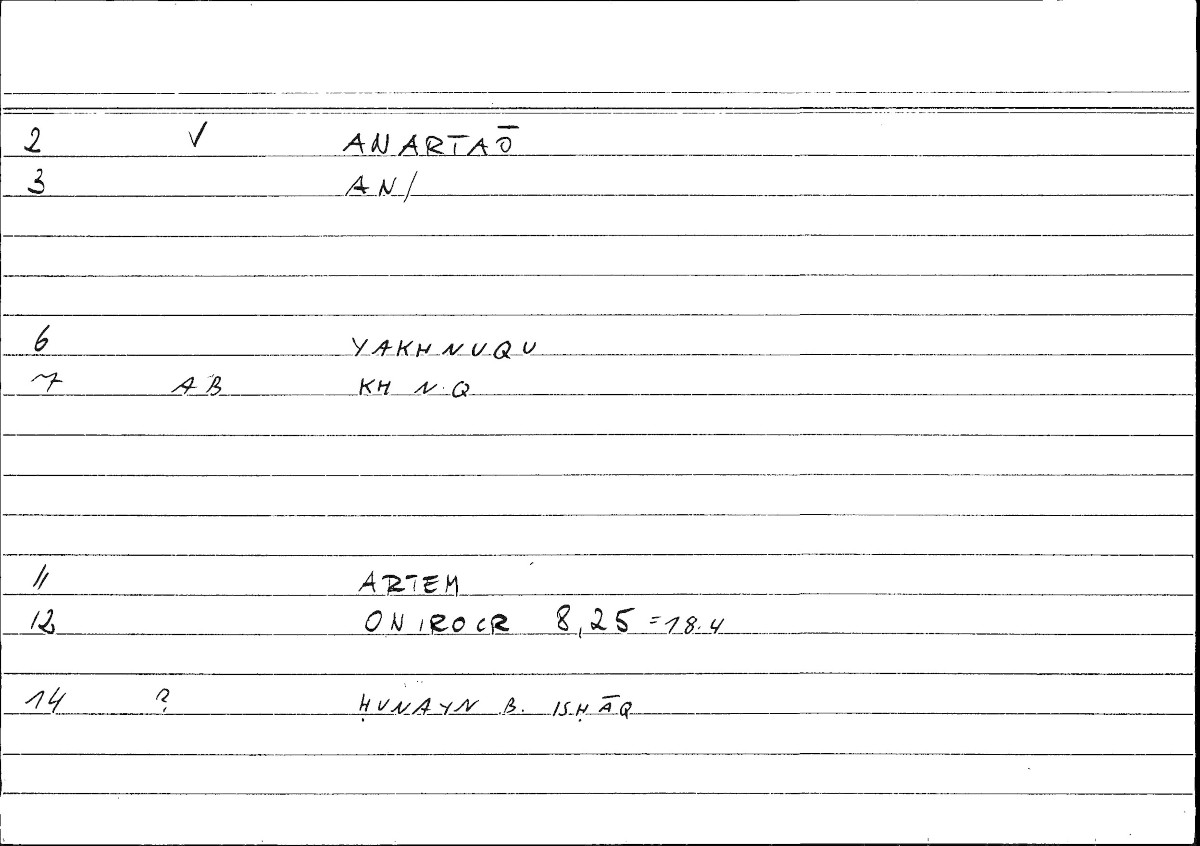 2 √ ANARTAŌ
3 AN/
6 YAKHNUQU
7 AB KH N.Q
11 ARTEM
12 ONIROCR 8,25 =18.4
14 ? ḤUNAYN B. ISḤĀQ